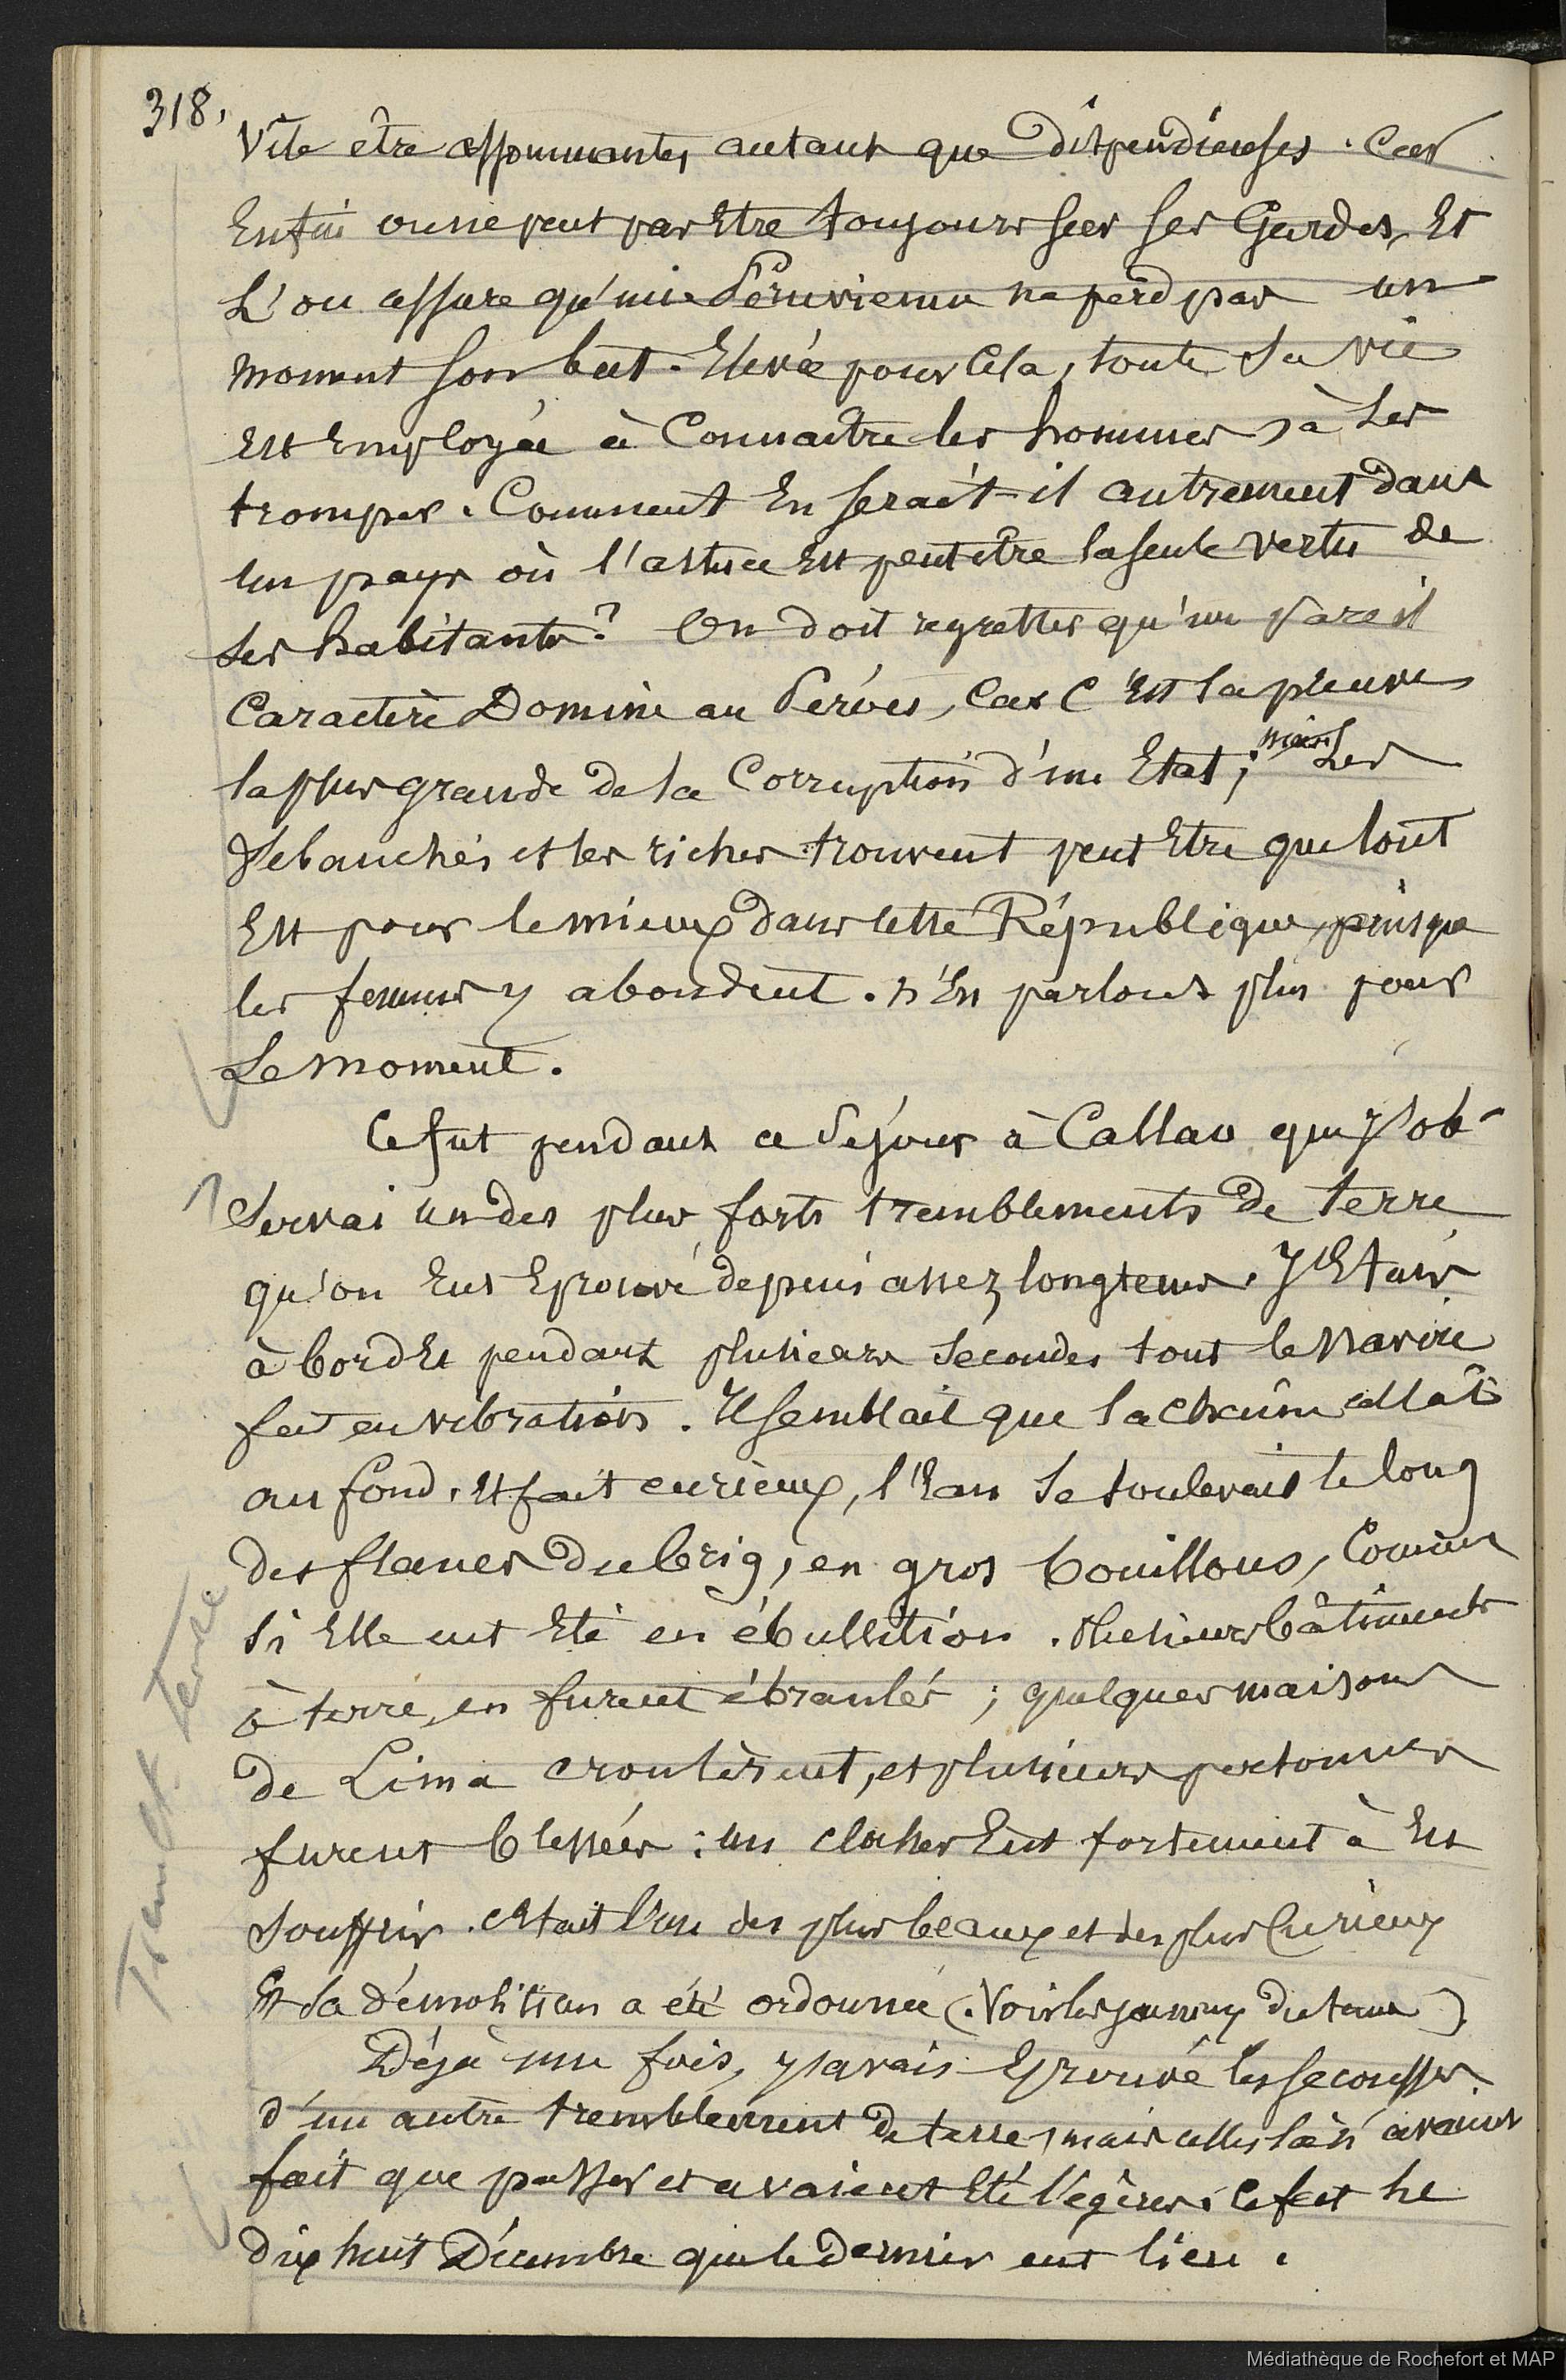 318.
Vite être assommantes autant que dispendieuses. Car
Enfin on ne peut pas Etre toujours sur ses Gardes, Et
L'on assure qu'une Péruvienne ne perd pas un
moment son but. Elevée pour Cela, toute Sa vie
est Employée à Connaitre les hommes, à Les
tromper. Comment En serait-il autrement dans
un pays où l'astuce Est peut être la seule vertu de
Ses habitants ? On doit regretter qu'un Pareil
Caractère Domine au Pérou, Car C'Est la preuve
la plus grande de la Corruption d'un Etat ; mais Les
Débauchés et les riches trouvent peut Etre que tout
Est pour le mieux dans cette République, puisque
les femmes y abondent. N'En parlons plus pour
Le moment.
Ce fut pendant ce Séjour à Callao que j'ob-
Servai un des plus forts tremblements de terre
qu'on Eut Eprouvé depuis assez longtems. J'Etais
à bord Et pendant plusieurs Secondes tout le Navire
fut en vibration. Il semblait que la chaîne allât
au fond, Et fait curieux, l'Eau Se soulevait le long
des flancs du brig, en gros bouillons, Comme
Si Elle eut Eté en ébullition. Plusieurs bâtiments
à terre, en furent ébranlés ; quelques maisons
de Lima croulèrent, et plusieurs personnes
furent blessées : un clocher Eut fortement à En
Souffrir. C'Etait l'un des plus beaux et des plus Curieux
Et Sa démolition a été ordonnée (. Voir les journaux du tems )
Déjà une fois, j'avais Eprouvé les secousses
d'un autre tremblement de terre, mais celles là n'avaient
fait que passer et avaient Eté légères. Ce fut le
dix huit Décembre que le dernier eut lieu.
Trem bt. Terre
Médiathèque de Rochefort et MAP